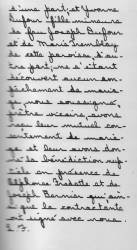 d'une part; et Yvonne
Dufour fille mineure
de feu Joseph Dufour
et de Marie Tremblay
de cette paroisse, d'au-
tre part; ne s'étant
découvert aucun em-
pêchement de maria-
ge, nous soussigné,
prêtre vicaire, avons
reçu leur mutuel con-
sentement de maria-
ge et leur avons don-
né la bénédiction nup-
tiale en présence de
et de
Joseph
que les contractants
ont signé avec nous.